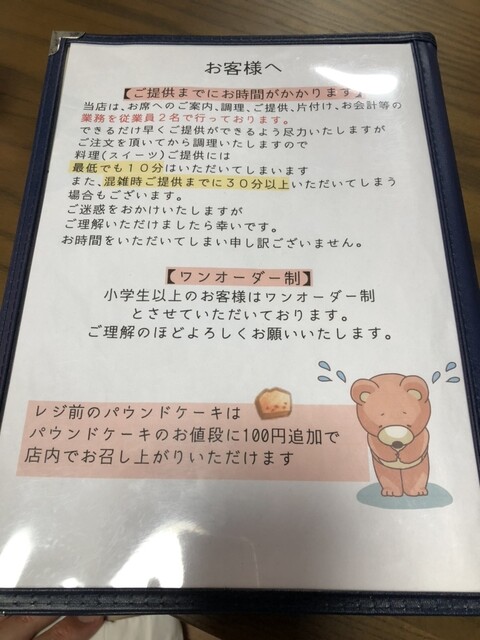 お客様へ
【ご提供までにお時間がかかります】
当店は、お席へのご案内、調理、ご提供、片付け、お会計等の
業務を従業員2名で行っております。
できるだけ早くご提供ができるよう尽力いたしますが
ご注文を頂いてから調理いたしますので
料理(スイーツ)ご提供には
最低でも10分はいただいてしまいます
また、混雑時ご提供までに30分以上いただいてしまう
場合もございます。
ご迷惑をおかけいたしますが
ご理解いただけましたら幸いです。
お時間をいただいてしまい申し訳ございません。
【ワンオーダー制】
小学生以上のお客様はワンオーダー制
とさせていただいております。
ご理解のほどよろしくお願いいたします。
レジ前のパウンドケーキは
パウンドケーキのお値段に100円追加で
店内でお召し上がりいただけます